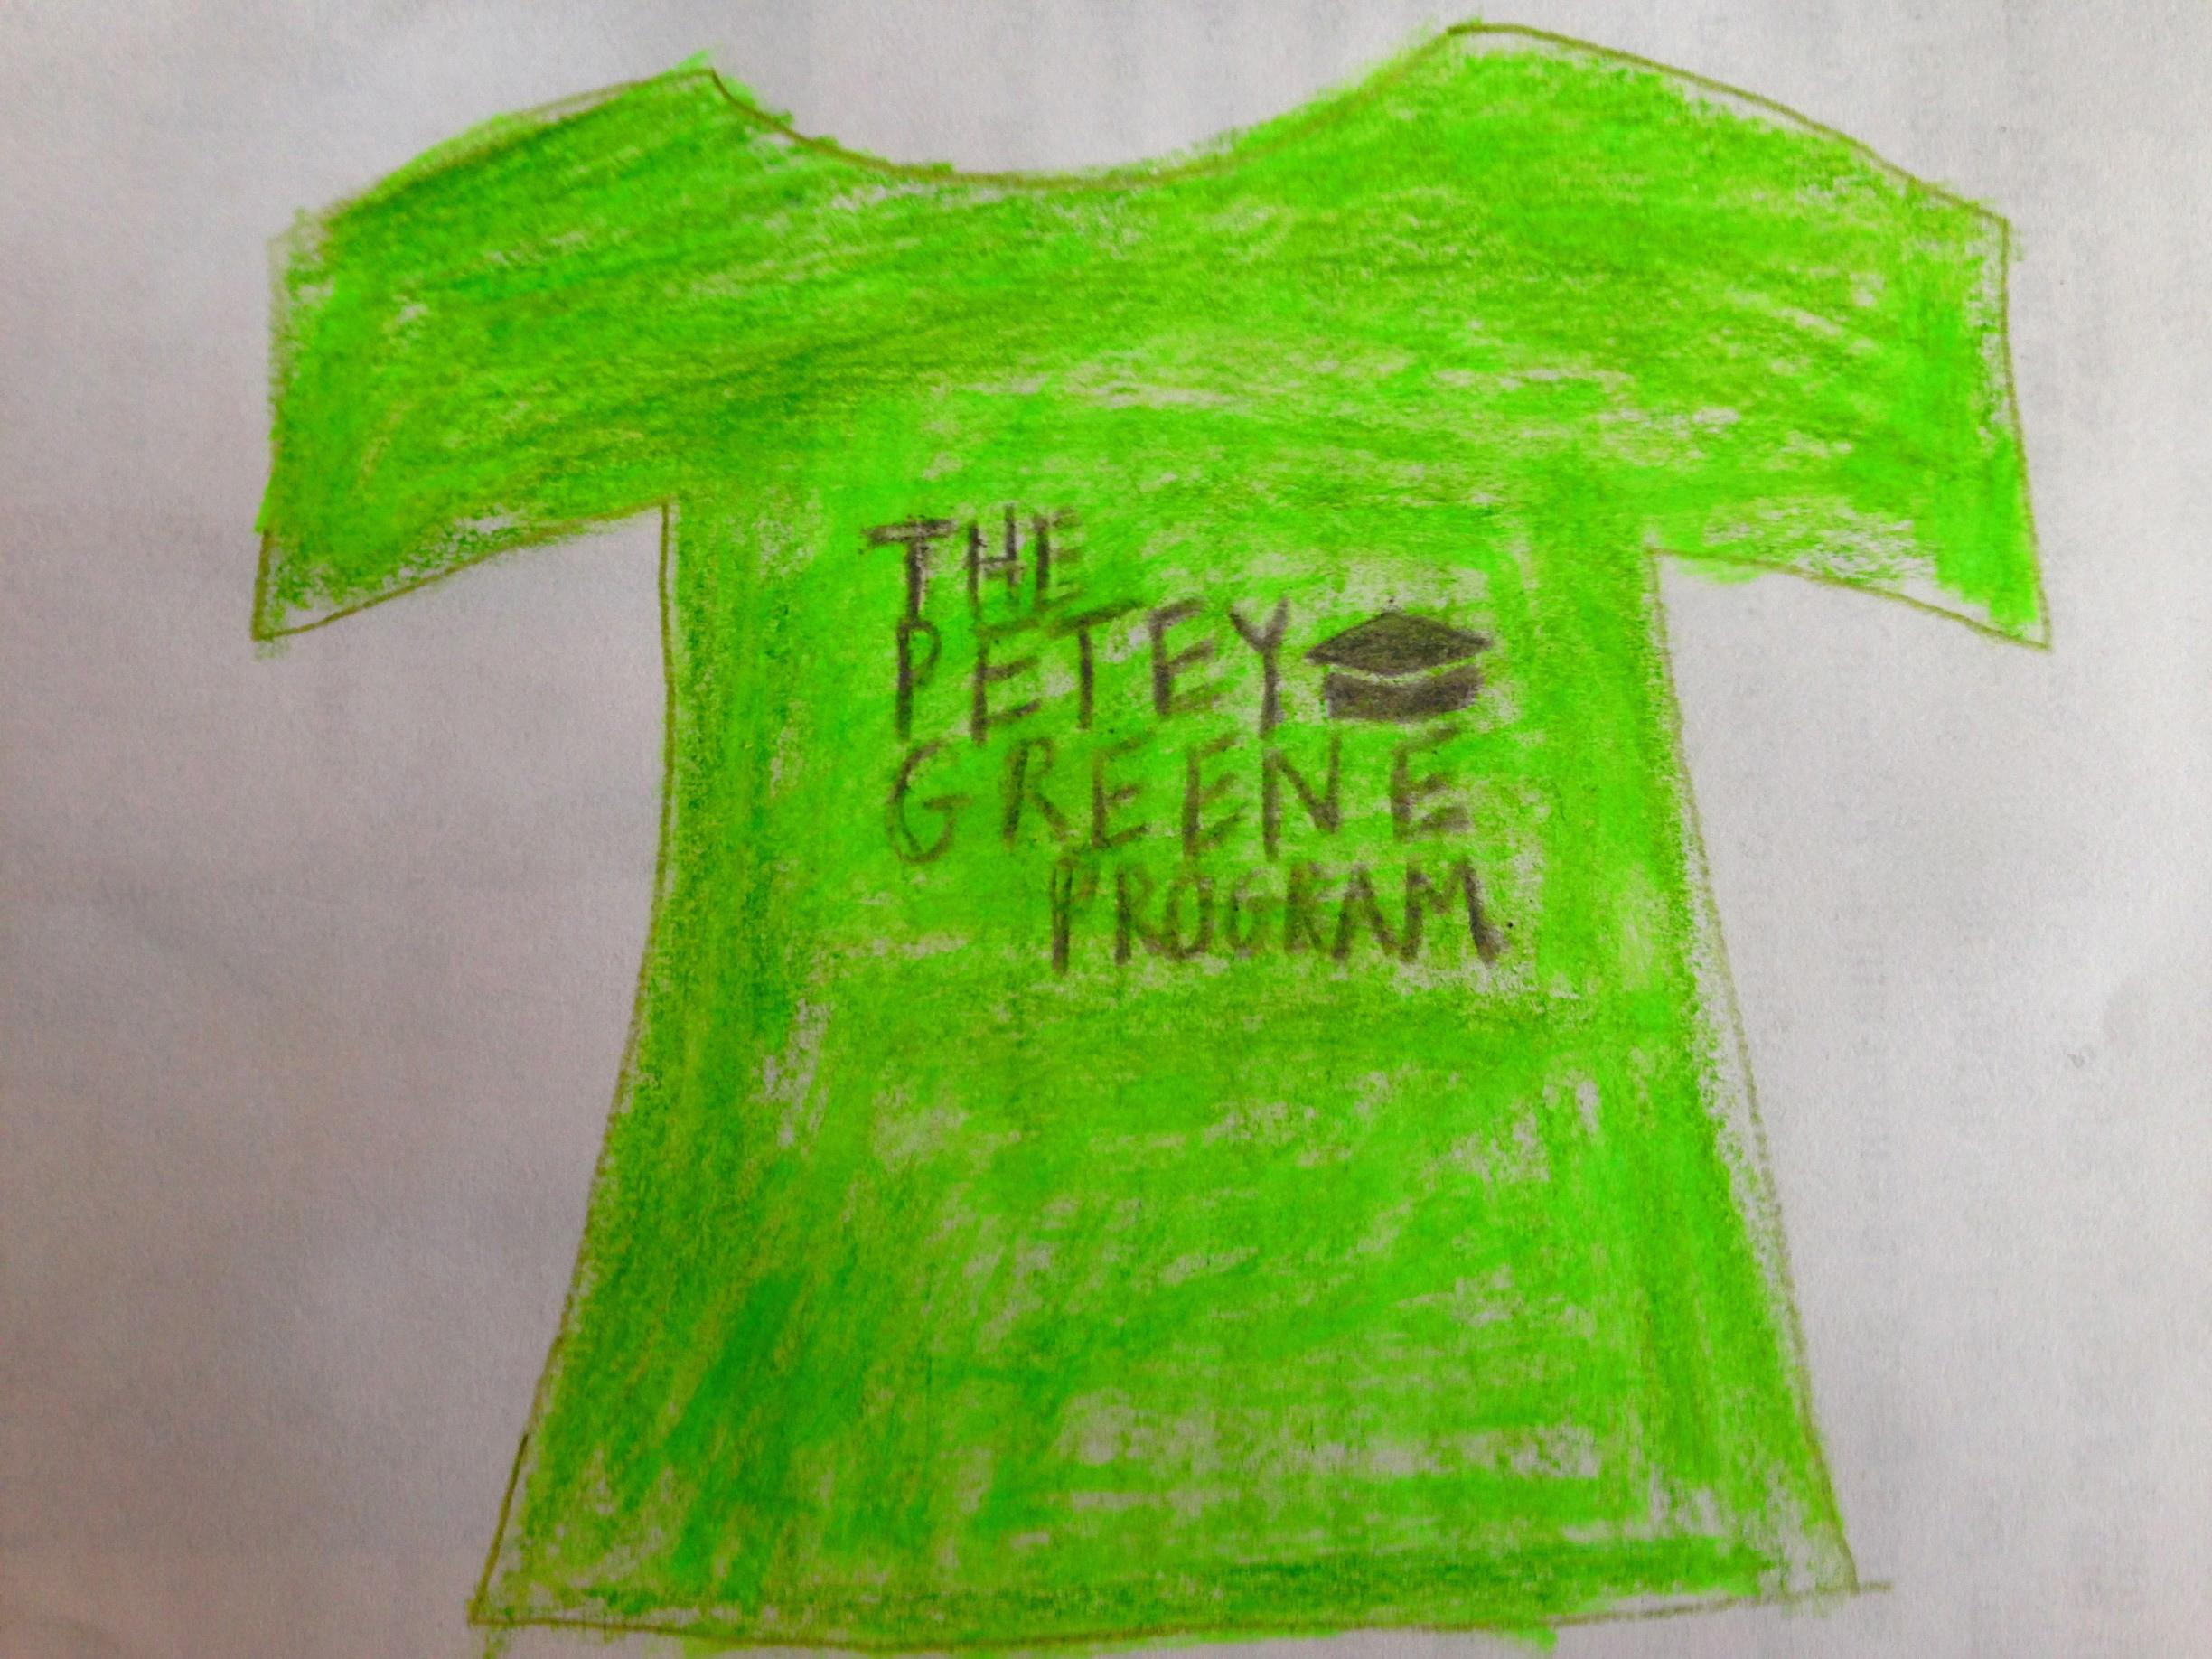 THE
PETEY
GREENE
PROGRAM